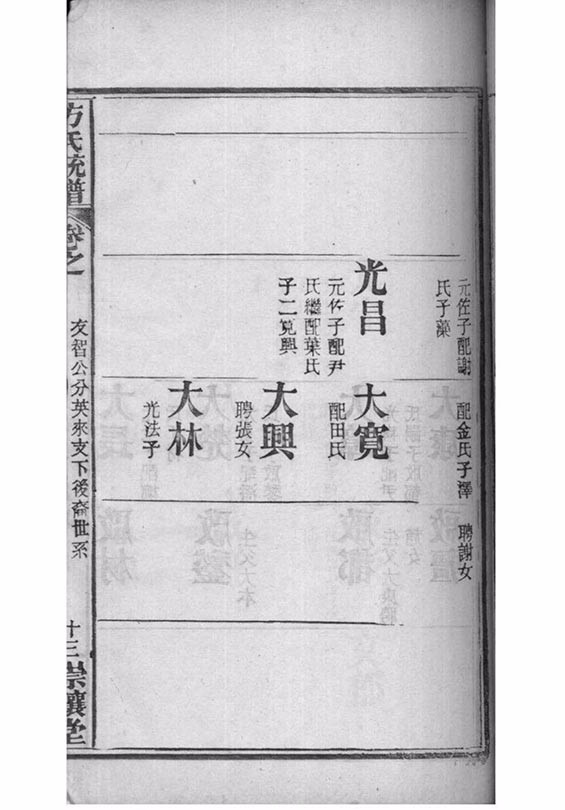 元佐子配謝
氏子藻
配金氏子澤
聘謝女
光昌
元佐子配尹
氏繼配葉氏
子二寬興
大寬
配田氏
大興
聘張女
大林
光法子
方氏統譜
卷之
友智公分英來支下後裔世系
十三
崇讓堂